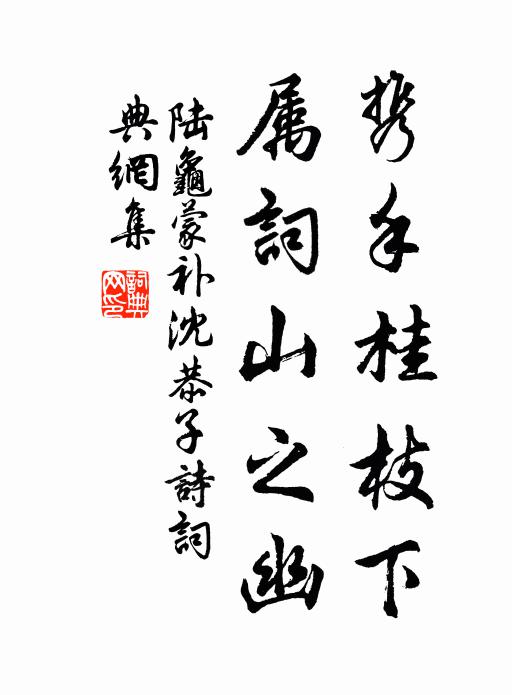 携手桂枝下
属詞山之幽
陆龜蒙补沈恭子詩詞
典網集
詞典网印